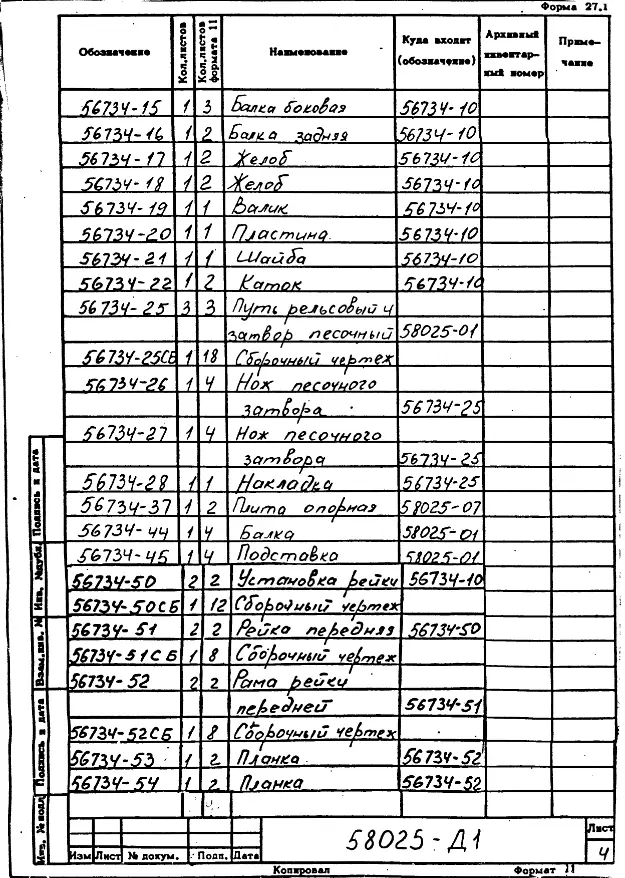 Форма 27.1
Обозначение Кол.листов Кол.листов формата 11 Наименование Куда входит (обозначение) Архивный инвентарный номер Примечание
56734-15 1 3 Балка боковая 56734-10
56734-16 1 2 Балка задняя 56734-10
56734-17 1 2 Желоб 56734-10
56734-18 1 2 Желоб 56734-10
56734-19 1 1 Валик 56734-10
56734-20 1 1 Пластина 56734-10
56734-21 1 1 Шайба 56734-10
56734-22 1 2 Каток 56734-10
56734-25 3 3 Путь рельсовый и
затвор песочный 58025-01
56734-25СБ 1 18 Сборочный чертеж
56734-26 1 4 Нож песочного
затвора 56734-25
56734-27 1 4 Нож песочного
затвора 56734-25
56734-28 1 1 Накладка 56734-25
56734-37 1 2 Плита опорная 58025-07
56734-44 1 4 Балка 58025-01
56734-45 1 4 Подставка 58025-01
56734-50 2 2 Установка рейки 56734-10
56734-50СБ 1 12 Сборочный чертеж
56734-51 2 2 Рейка передняя 56734-50
56734-51СБ 1 8 Сборочный чертеж
56734-52 2 2 Рама рейки
передней 56734-51
56734-52СБ 1 8 Сборочный чертеж
56734-53 1 2 Планка 56734-52
56734-54 1 2 Планка 56734-52
Подпись и дата
Инв. №дубл.
Взам.инв. №
Подпись и дата
Инв. №подл.
58025-Д1
Лист
4
Изм Лист № докум. Подп. Дата
Копировал Формат 11